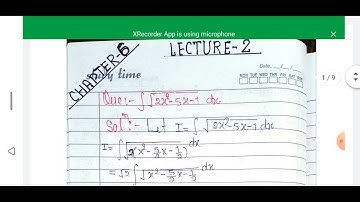 XRecorder App is using microphone
LECTURE-2
CHAPTER-6
Study time
Date: __/__/__
MON TUE WED THU FRI SAT
1 / 9
Que:- ∫√2x²-5x-1 dx
Solⁿ:- Let I = ∫√2x²-5x-1 dx
I = ∫√2(x² - 5/2x - 1/2) dx
= √2 ∫√x² - 5/2x - 1/2 dx